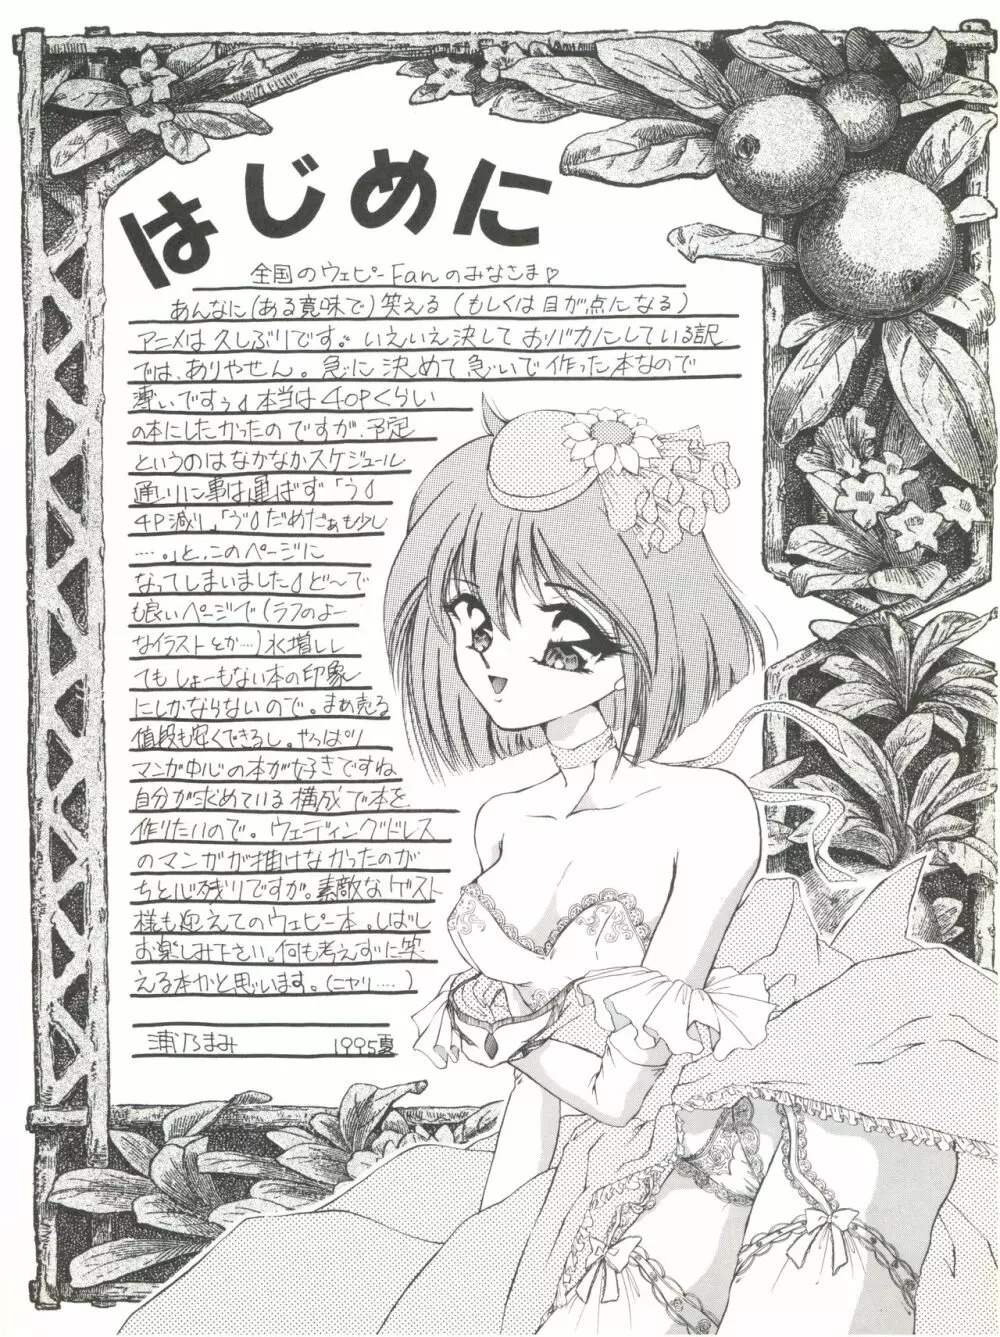 はじめに
全国のウェピーFanのみなさま♡
あんなに(ある意味で)笑える(もしくは目が点になる)
アニメは久しぶりです。いえいえ決しておバカにしている訳
では、ありやせん。急に決めて急いで作った本なので
薄いですぅ♩本当は40Pくらい
の本にしたかったのですが、予定
というのはなかなかスケジュール
通りに事は運ばず「う♩
4P減り」「う♩だめだぁも少し
……。」と、このページに
なってしまいました♩ど〜で
も良いページで(ラフのよー
なイラストとか…)水増しし
てもしょーもない本の印象
にしかならないので。まぁ売る
値段も安くできるし。やっぱり
マンガ中心の本が好きですね
自分が求めている構成で本を
作りたいので。ウェディングドレス
のマンガが描けなかったのが
ちと心残りですが。素敵なゲスト
様も迎えてのウェピー本。しばし
お楽しみ下さい。何も考えずに笑
える本かと思います。(ニヤリ……)
浦乃まみ 1995夏